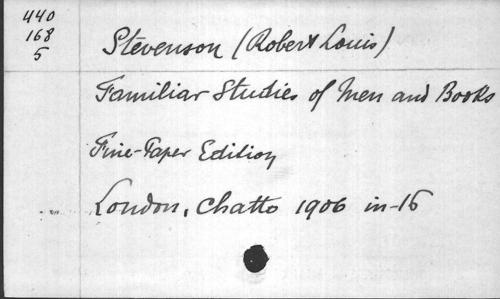 440
168
5
Stevenson (Robert Louis)
Familiar Studies of Men and Books
Fine-Paper Edition
London, Chatto 1906 in-16